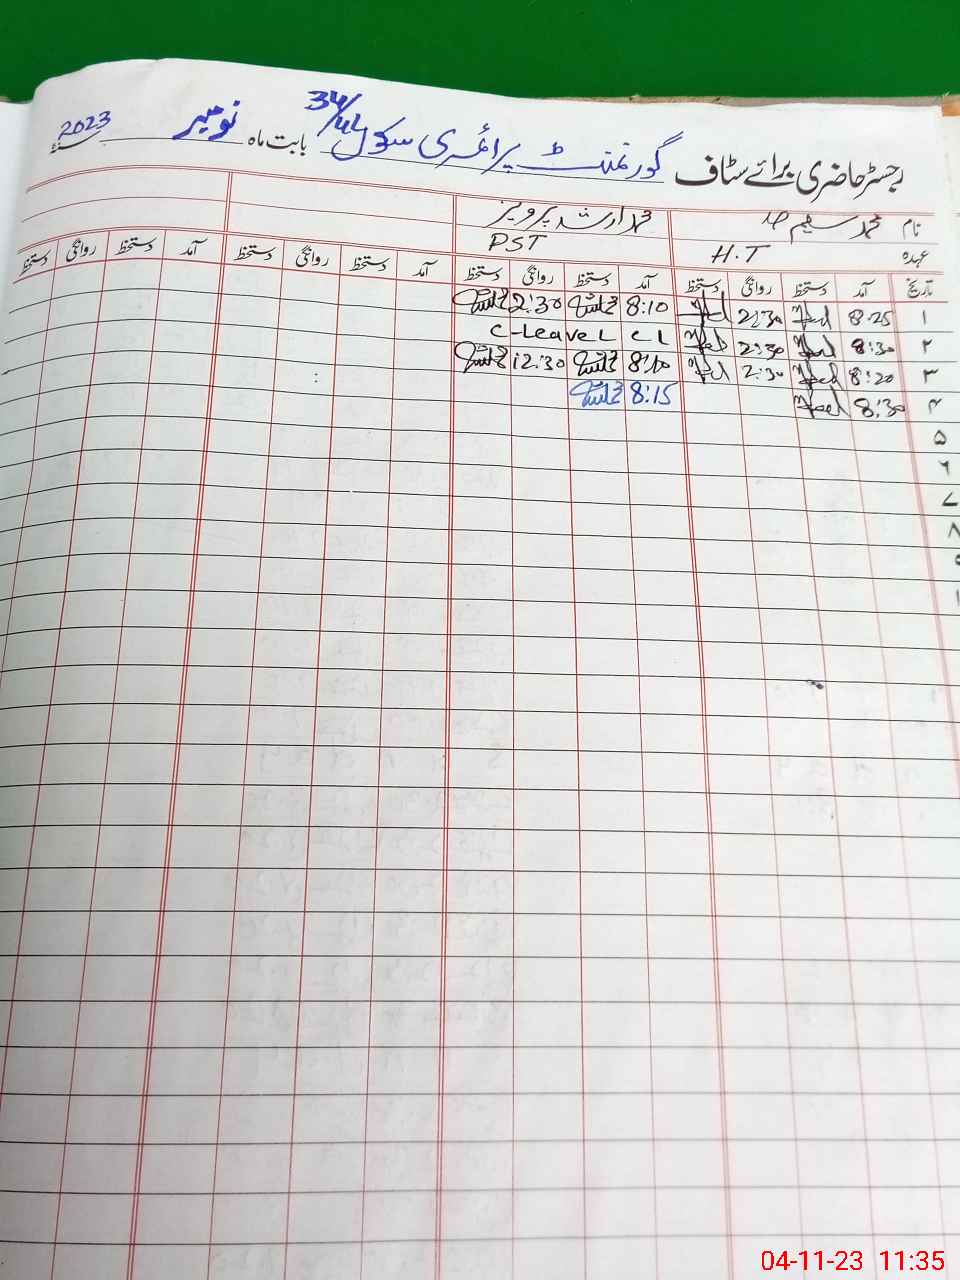 رجسٹر حاضری برائے سٹاف گورنمنٹ پرائمری سکول بابت ماہ نومبر سنہ 2023
نام محمد سلیم محمد ارشد پرویز
عہدہ H.T PST
تاریخ آمد دستخط روانگی دستخط آمد دستخط روانگی دستخط آمد دستخط روانگی دستخط آمد دستخط روانگی دستخط
۱ 8:25 2:30 8:10 2:30
۲ 8:30 2:30 C-Leave CL
۳ 8:20 2:30 8:10 12:30
۴ 8:30 8:15
۵
۶
۷
۸
04-11-23 11:35